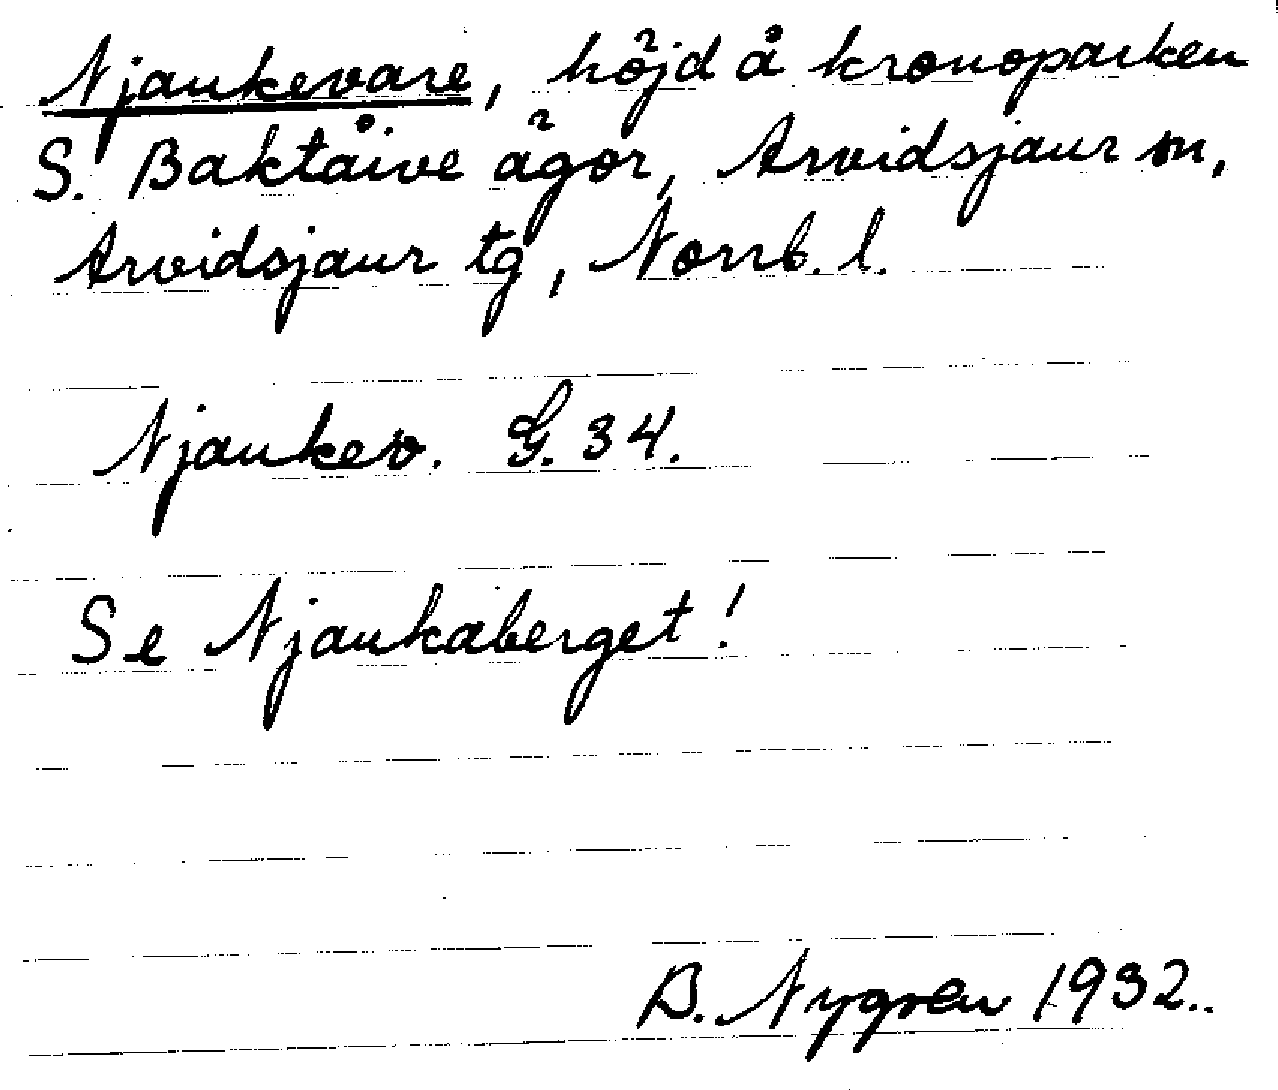 Njaukevare, höjd å kronoparken
S. Baktåive ägor, Arvidsjaur sn,
Arvidsjaur tg, Norrb. l.
Njaukev. G. 34.
Se Njaukaberget!
B. Nygren 1932.